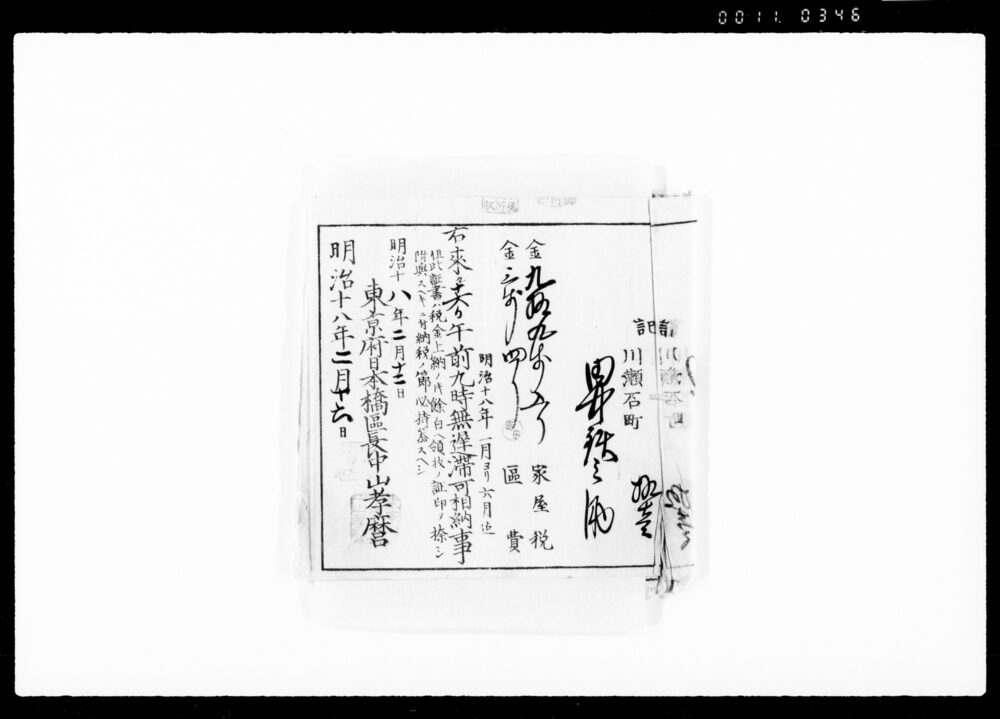 0011. 0346
記
川瀬石町
拾壹
金九拾九銭五り
家屋税
金三銭四り
區費
明治十八年一月ヨリ六月迄
右來ル十六日午前九時無遅滞可相納事
但此証書ハ税金上納ノ片餘白ヘ領收ノ証印ノ捺シ
附與スヘキニ付納税ノ節必持參スヘシ
明治十八年二月十二日
東京府日本橋區長中山孝麿
明治十八年二月十六日